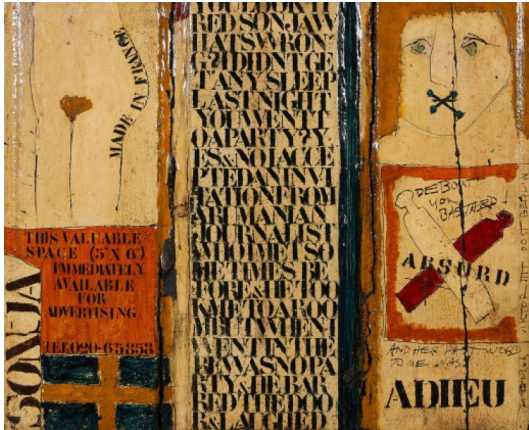 MADE IN FRANCE
THIS VALUABLE
SPACE (5"X 6")
IMMEDIATELY
AVAILABLE
FOR
ADVERTISING
TEL020-65858
SONJA
RED SONJAW
HATSWRON
G?IDIDNTGE
TANYSLEEP
LASTNIGHT
YOUWENTT
OAPARTY?Y
ES&NOIACCE
PTEDANINVI
TATIONFROM
ARUMANIAN
JOURNALIST
WHOIMETSO
METIMESBE
FORE&HETOO
KMETOAROO
MBUTWHENI
WENTINTHE
REWASNOPA
RTY&HEBAR
REDTHEDOO
R&LAUGHED
DEBOUT
YOU
BASTARD!
ABSURD
AND HER WORD
TO ME WAS
ADIEU